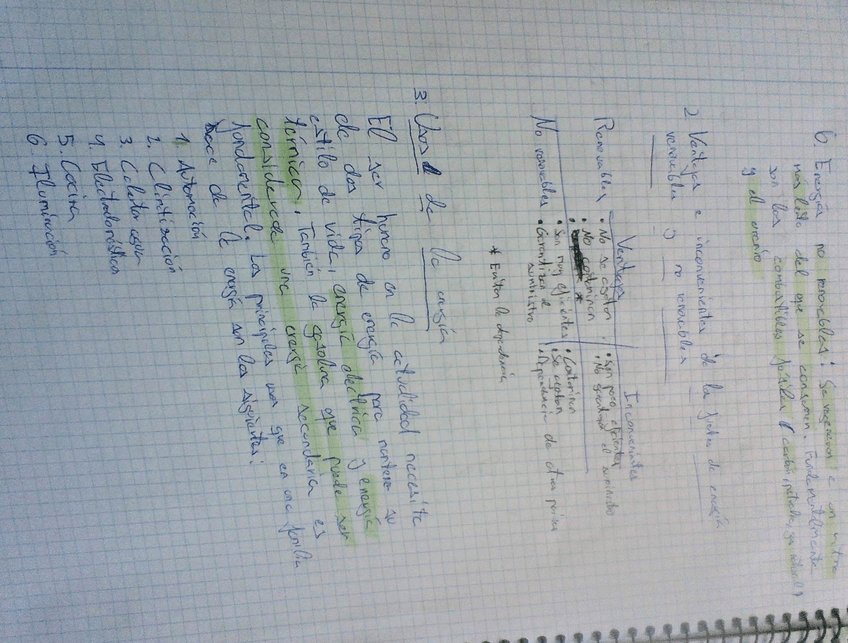 6. Energía no renovables: Se regeneran a un ritmo
más lento del que se consumen. Fundamentalmente
son los combustibles fósiles (carbón, petróleo, gas natural)
y el uranio
2 Ventajas e inconvenientes de la fuentes de energía
renovables y no renovables
Ventajas Inconvenientes
Renovables • No se agotan • Son poco eficientes
• No contaminan • No garantizan el suministro
*
No renovables • Son muy eficientes • Contaminan
• Garantizan el • Se agotan
suministro • Dependencia de otros países
* Evitan la dependencia
3. Usos de la energía
El ser humano en la actualidad necesita
de dos tipos de energía para mantener su
estilo de vida, energía eléctrica y energía
térmica. También la gasolina que puede ser
considerada una energía secundaria es
fundamental. Los principales usos que en una familia
hace de la energía son los siguientes:
1. Automoción
2. Climatización
3. Calentar agua
4. Electrodomésticos
5. Cocina
6. Iluminación